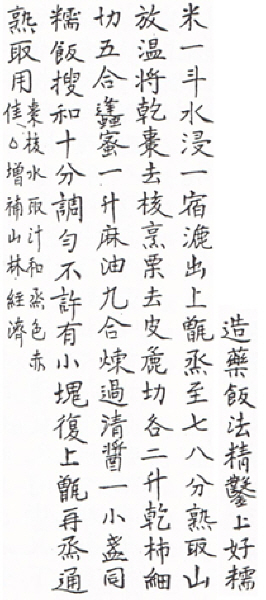 造藥飯法精鑿上好糯
米一斗水浸一宿漉出上甑烝至七八分熟取山
放温將乾棗去核烹栗去皮麁切各二升乾柿細
切五合蠭蜜一升麻油九合煉過清醬一小盞同
糯飯搜和十分調勻不許有小塊復上甑再烝通
熟取用
棗核水取汁和烝色赤
佳△增補山林經濟